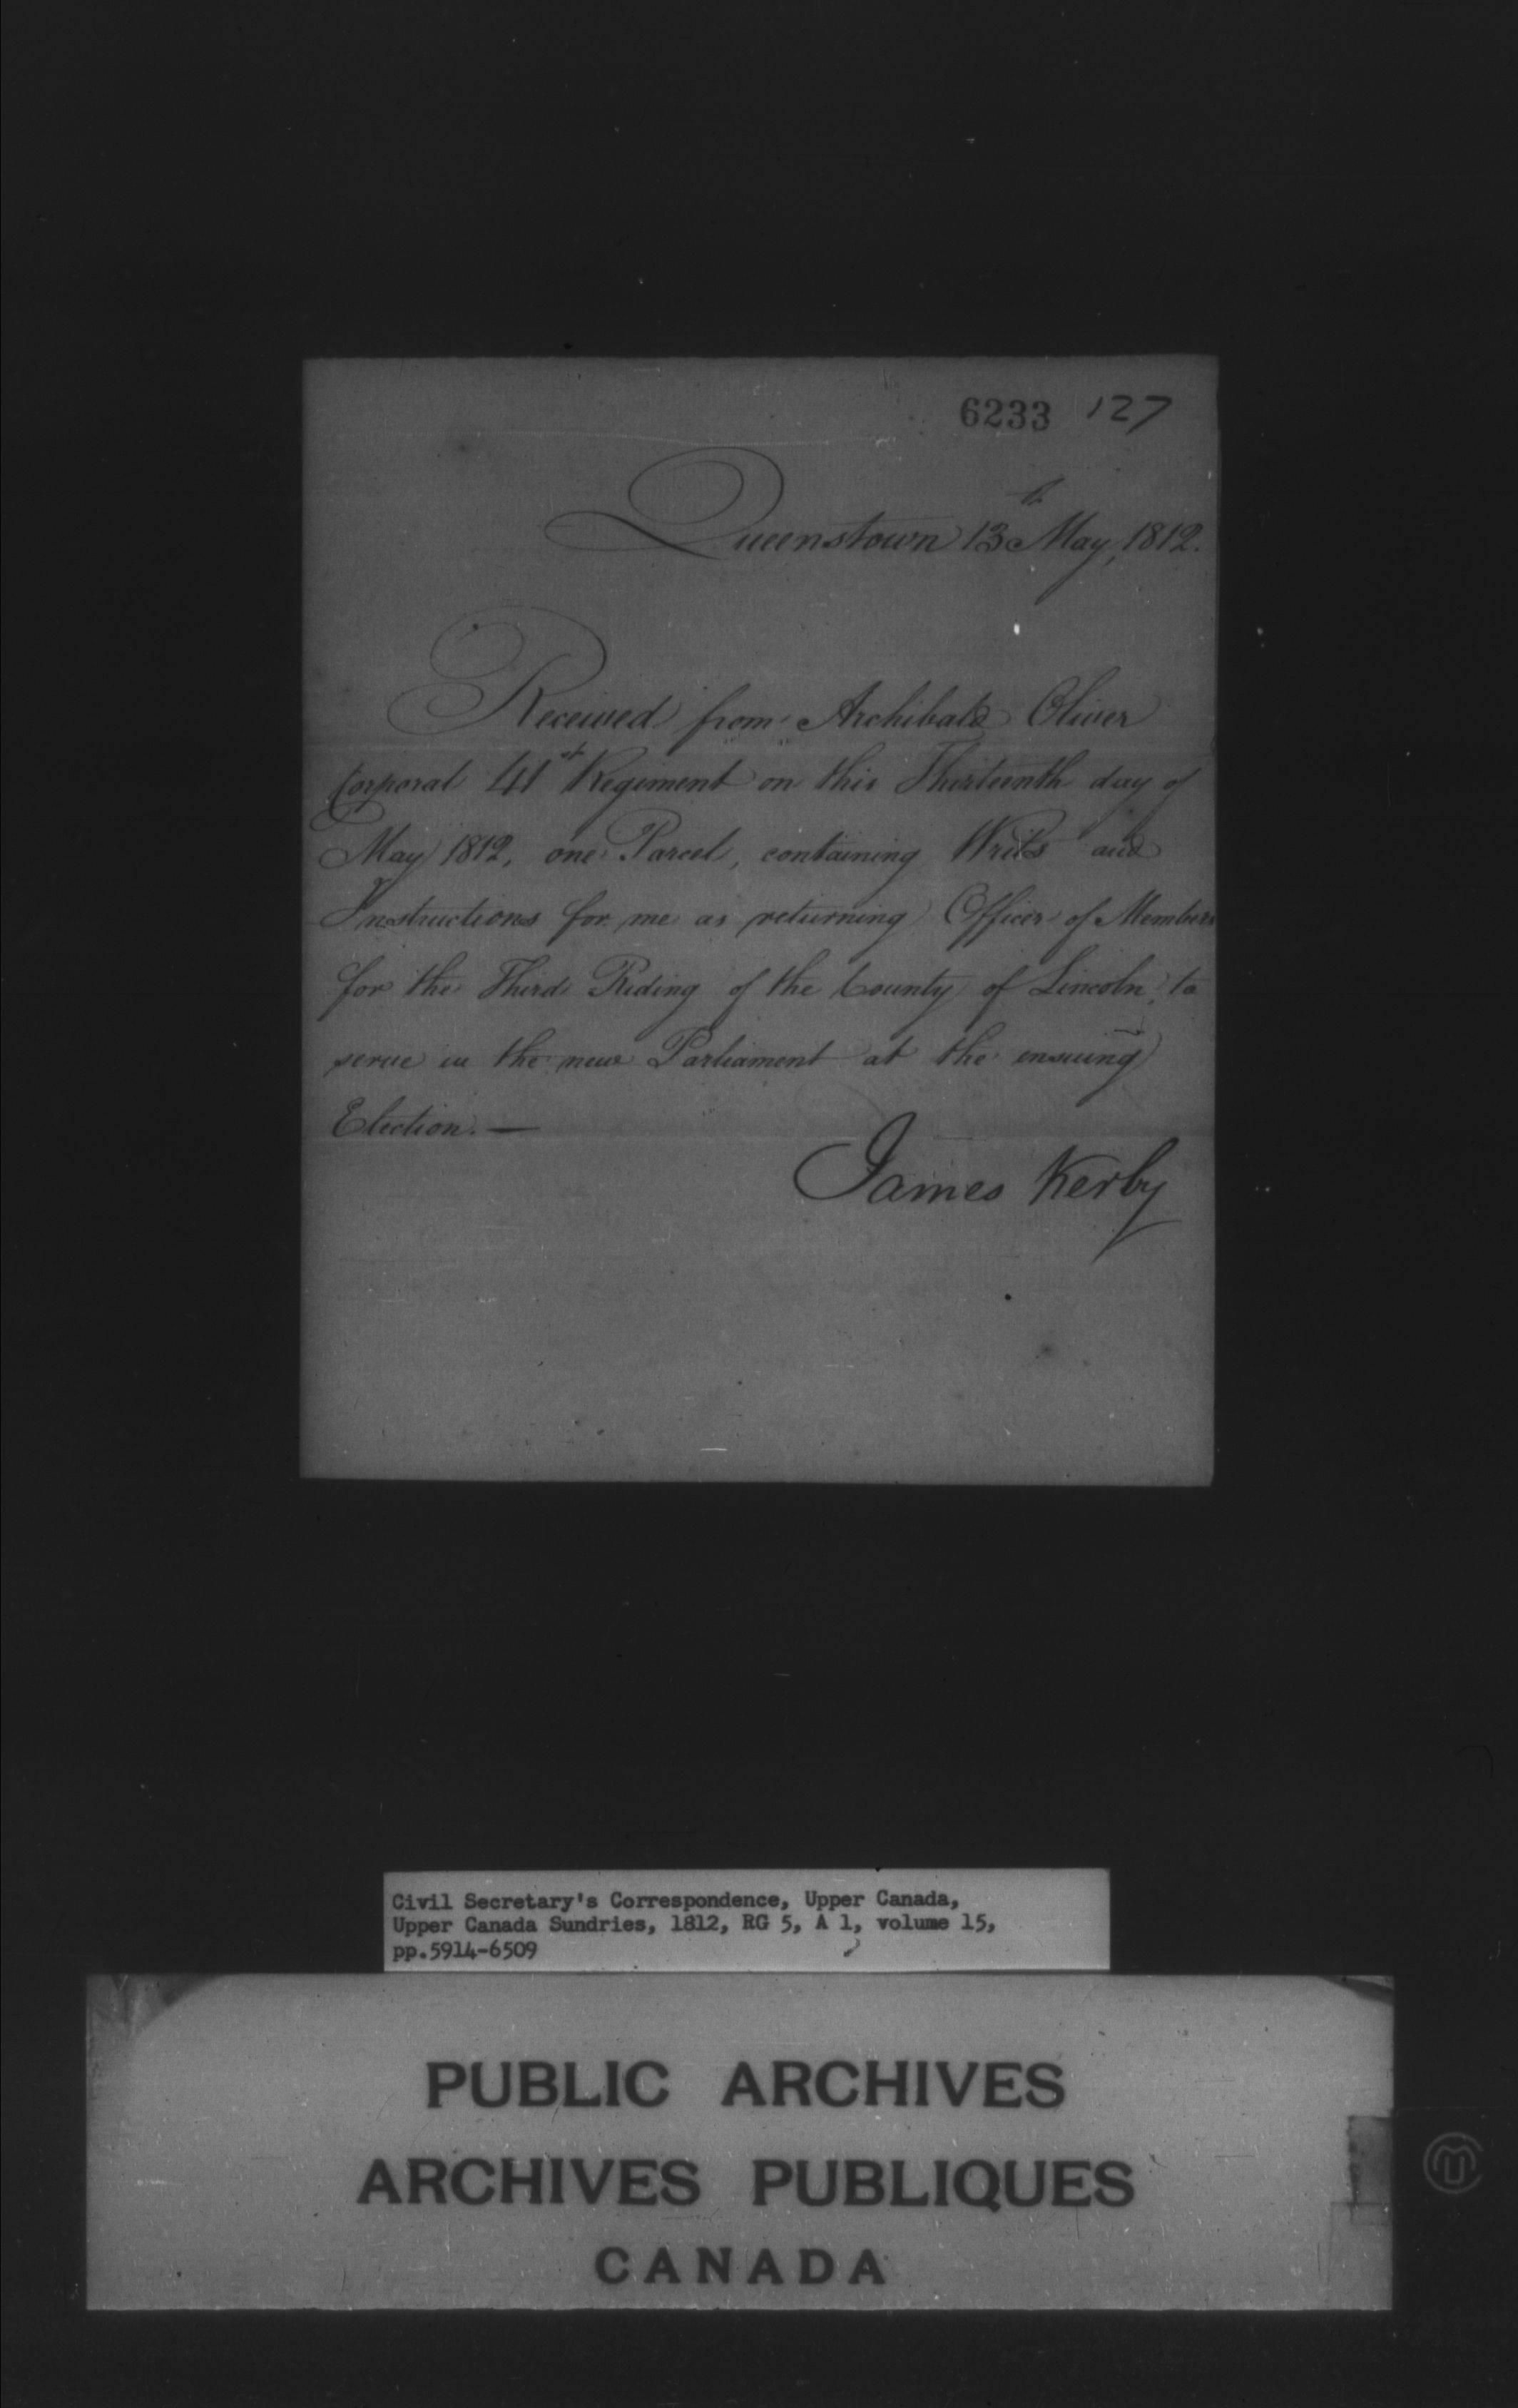 6233 127
Queenstown 13th May, 1812.
Received from Archibald Oliver
Corporal 41st Regiment on this Thirteenth day of
May 1812, one Parcel, containing Writs and
Instructions for me as returning Officer of Members
for the Third Riding of the County of Lincoln, to
serve in the new Parliament at the ensuing
Election. —
James Kerby
Civil Secretary's Correspondence, Upper Canada,
Upper Canada Sundries, 1812, RG 5, A 1, volume 15,
pp.5914-6509
PUBLIC ARCHIVES
ARCHIVES PUBLIQUES
CANADA